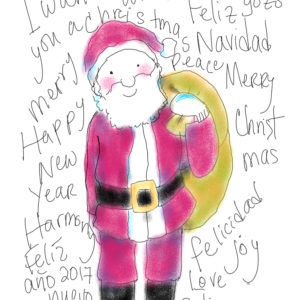 I want
you a christmas
merry
Happy
New
Year
Harmony
Feliz
año 2017
nuevo
Feliz gozo
Navidad
peace
Merry
Christ
mas
felicidad
joy
Love